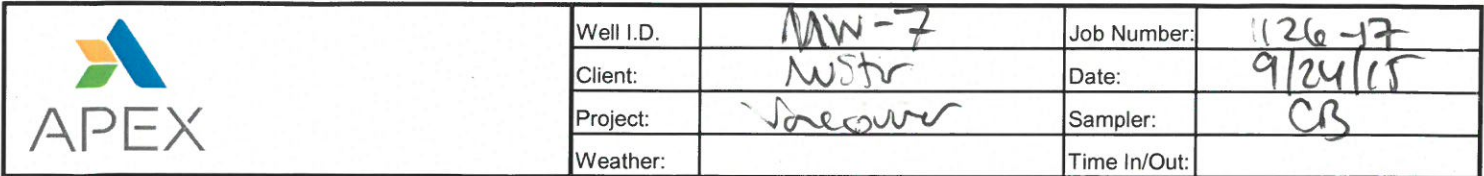 Well I.D. MW-7 Job Number: 1126-17
Client: NWStr Date: 9/24/15
APEX Project: Vancouver Sampler: CB
Weather: Time In/Out: